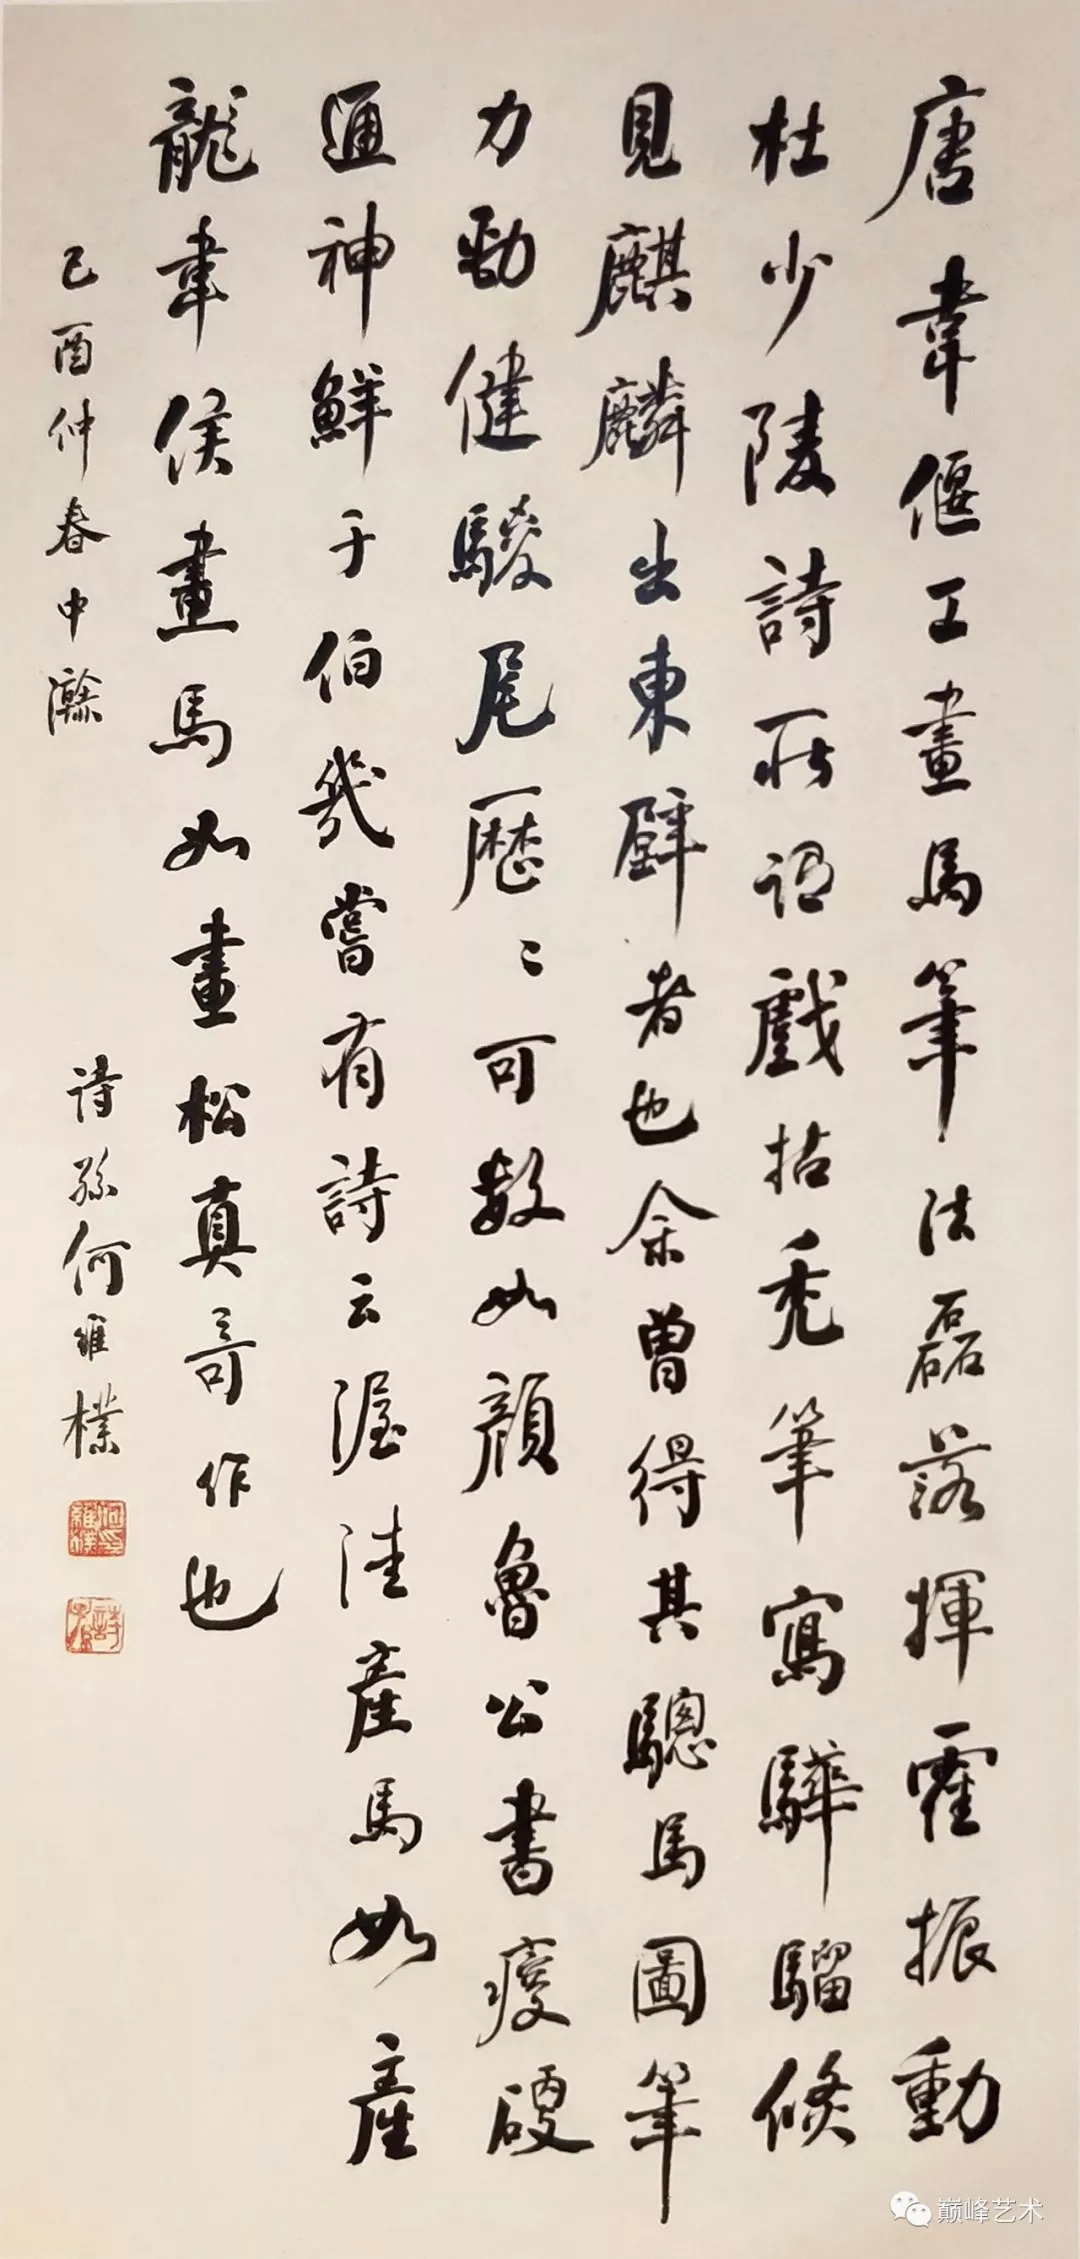 唐韋偃工畫馬筆法磊落揮霍振動
杜少陵詩所謂戲拈禿筆寫驊騮倏
見麒麟出東壁者也余曾得其驄馬圖筆
力勁健駿尾歷〻可數如顏魯公書瘦硬
通神鮮于伯幾嘗有詩云渥洼產馬如產
龍韋侯畫馬如畫松真奇作也
己酉仲春中澣
詩孫何維樸
何維樸印
詩孫
巅峰艺术